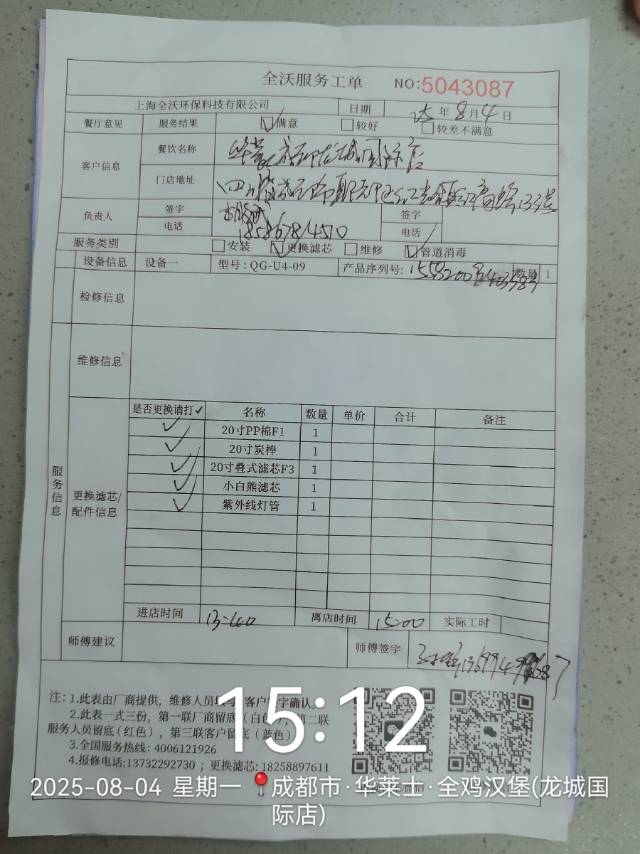 全沃服务工单 NO:5043087
上海全沃环保科技有限公司 日期 25年8月4日
餐厅意见 服务结果 满意 较好 较差不满意
客户信息 餐饮名称
门店地址
负责人 签字 签字
电话 电话
服务类别 安装 更换滤芯 维修 管道消毒
设备信息 设备一 型号:QG-U4-09 产品序列号: 数量 1
检修信息
维修信息
服务信息
更换滤芯/配件信息
是否更换请打✓ 名称 数量 单价 合计 备注
✓ 20寸PP棉F1 1
✓ 20寸炭棒 1
✓ 20寸叠式滤芯F3 1
✓ 小白熊滤芯 1
✓ 紫外线灯管 1
进店时间 离店时间 15:00 实际工时
师傅建议 师傅签字
注:1.此表由厂商提供,维修人员 客户 字确认。
2.此表一式三份,第一联厂商留底(白色) 第二联
服务人员留底(红色),第三联客户留底(蓝色)
3.全国服务热线: 4006121926
4.报修电话:13732292730 ; 更换滤芯: 18258897611
15:12
2025-08-04 星期一 成都市·华莱士·全鸡汉堡(龙城国
际店)